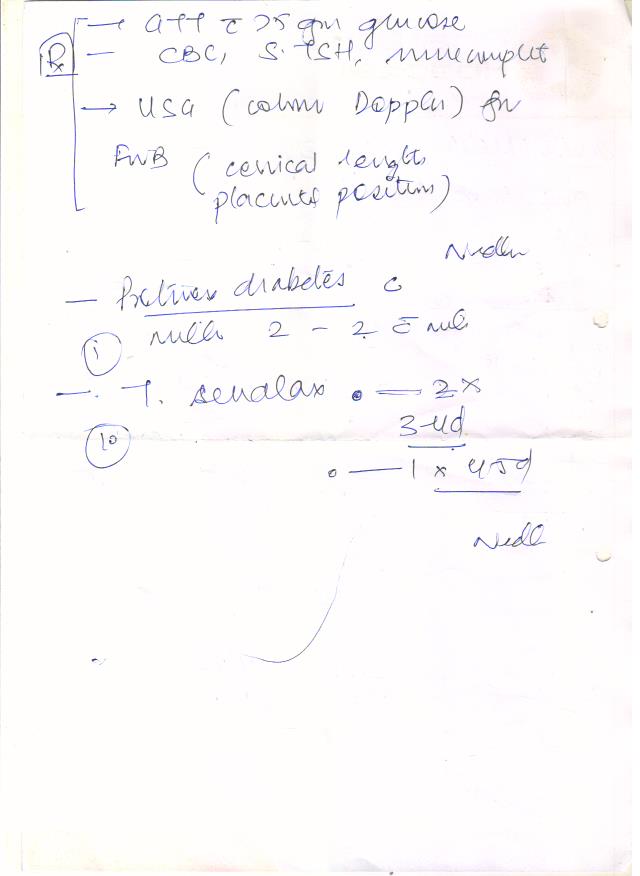 GTT c̄ 75 gm glucose
Rx - CBC, S. TSH, urine complet
→ USG (colour Doppler) for
FWB (cervical length
placenta position)
- Protinex diabetes c̄
① milk 2 - 2 c̄ milk
- T. senalax • = 2 x
⑩ 3-4d
• — 1 x 45d